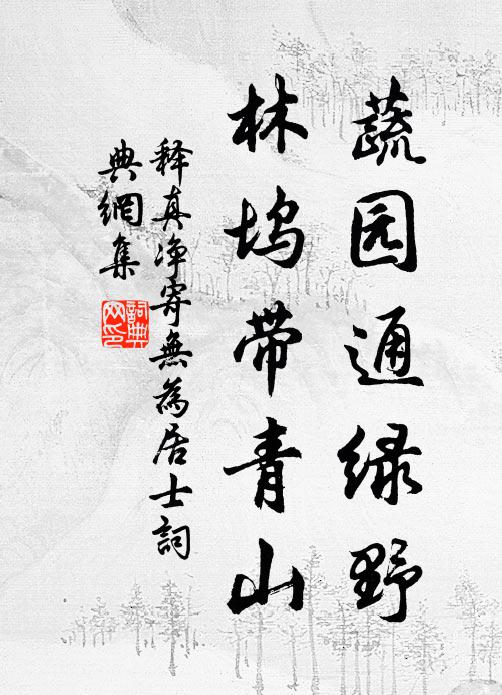 蔬园通绿野
林坞带青山
释真净寄無為居士詞
典網集
詞典
网印